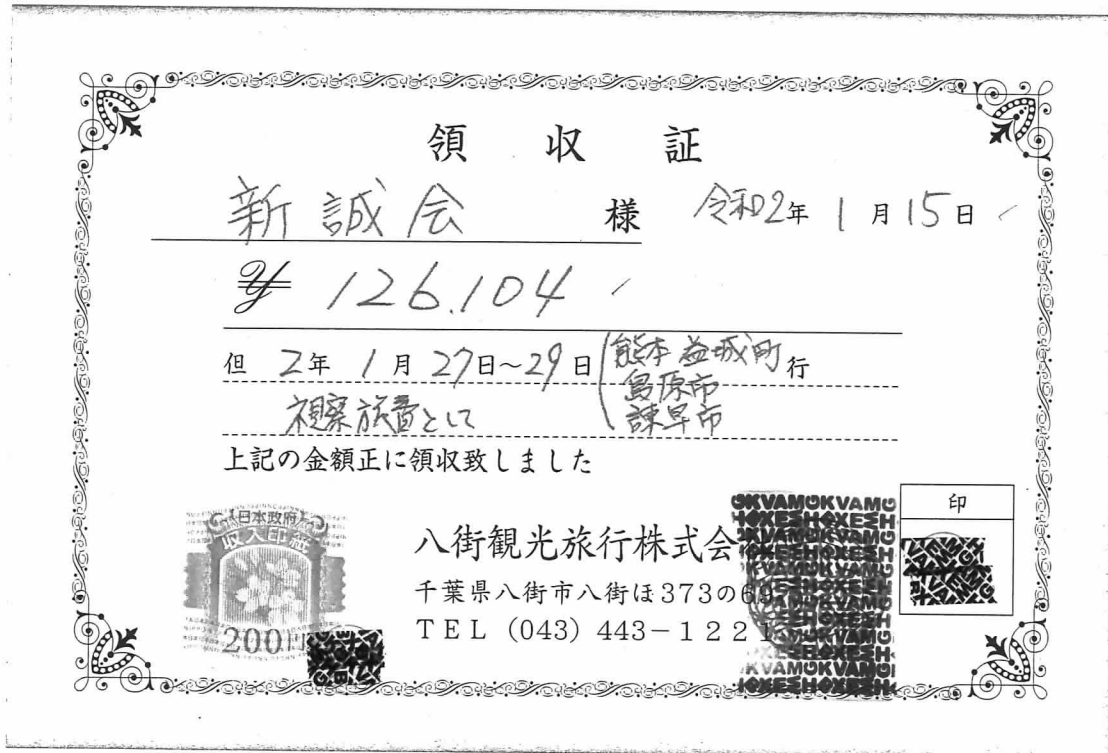 領収証
新誠会 様 令和2年1月15日
¥ 126.104
但 2年1月27日~29日 熊本益城町 行
島原市
視察旅費として 諫早市
上記の金額正に領収致しました
印
日本政府
収入印紙
200円
八街観光旅行株式会
千葉県八街市八街ほ373の6
TEL (043) 443-122